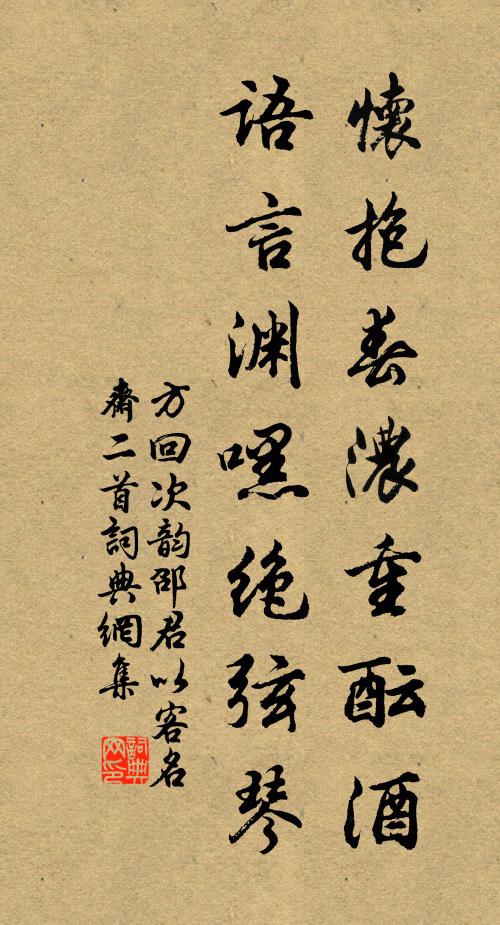 懷抱春濃重酝酒
语言渊嘿绝弦琴
方回次韵邵君以客名
齋二首詞典網集
詞典网印